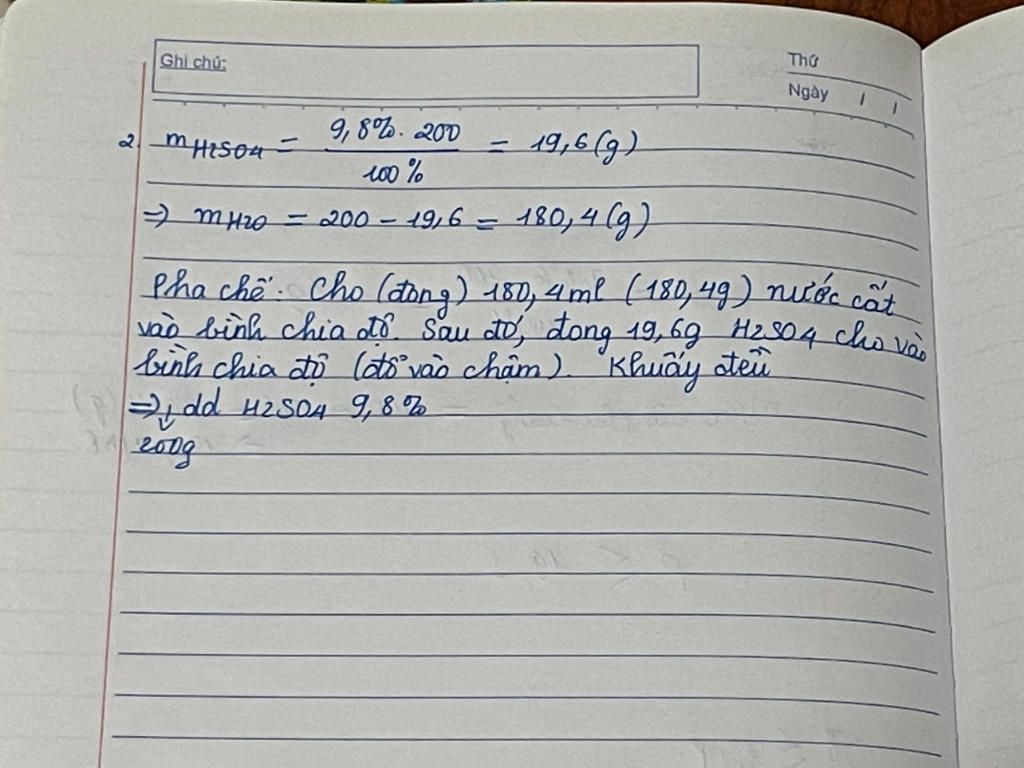 Ghi chú:
Thứ
Ngày / /
2. mH2SO4 = 9,8%. 200 / 100% = 19,6(g)
=> mH2O = 200 - 19,6 = 180,4(g)
Pha chế: Cho (đong) 180,4ml (180,4g) nước cất
vào bình chia độ. Sau đó, đong 19,6g H2SO4 cho vào
bình chia độ (đổ vào chậm). Khuấy đều
=> dd H2SO4 9,8%
200g